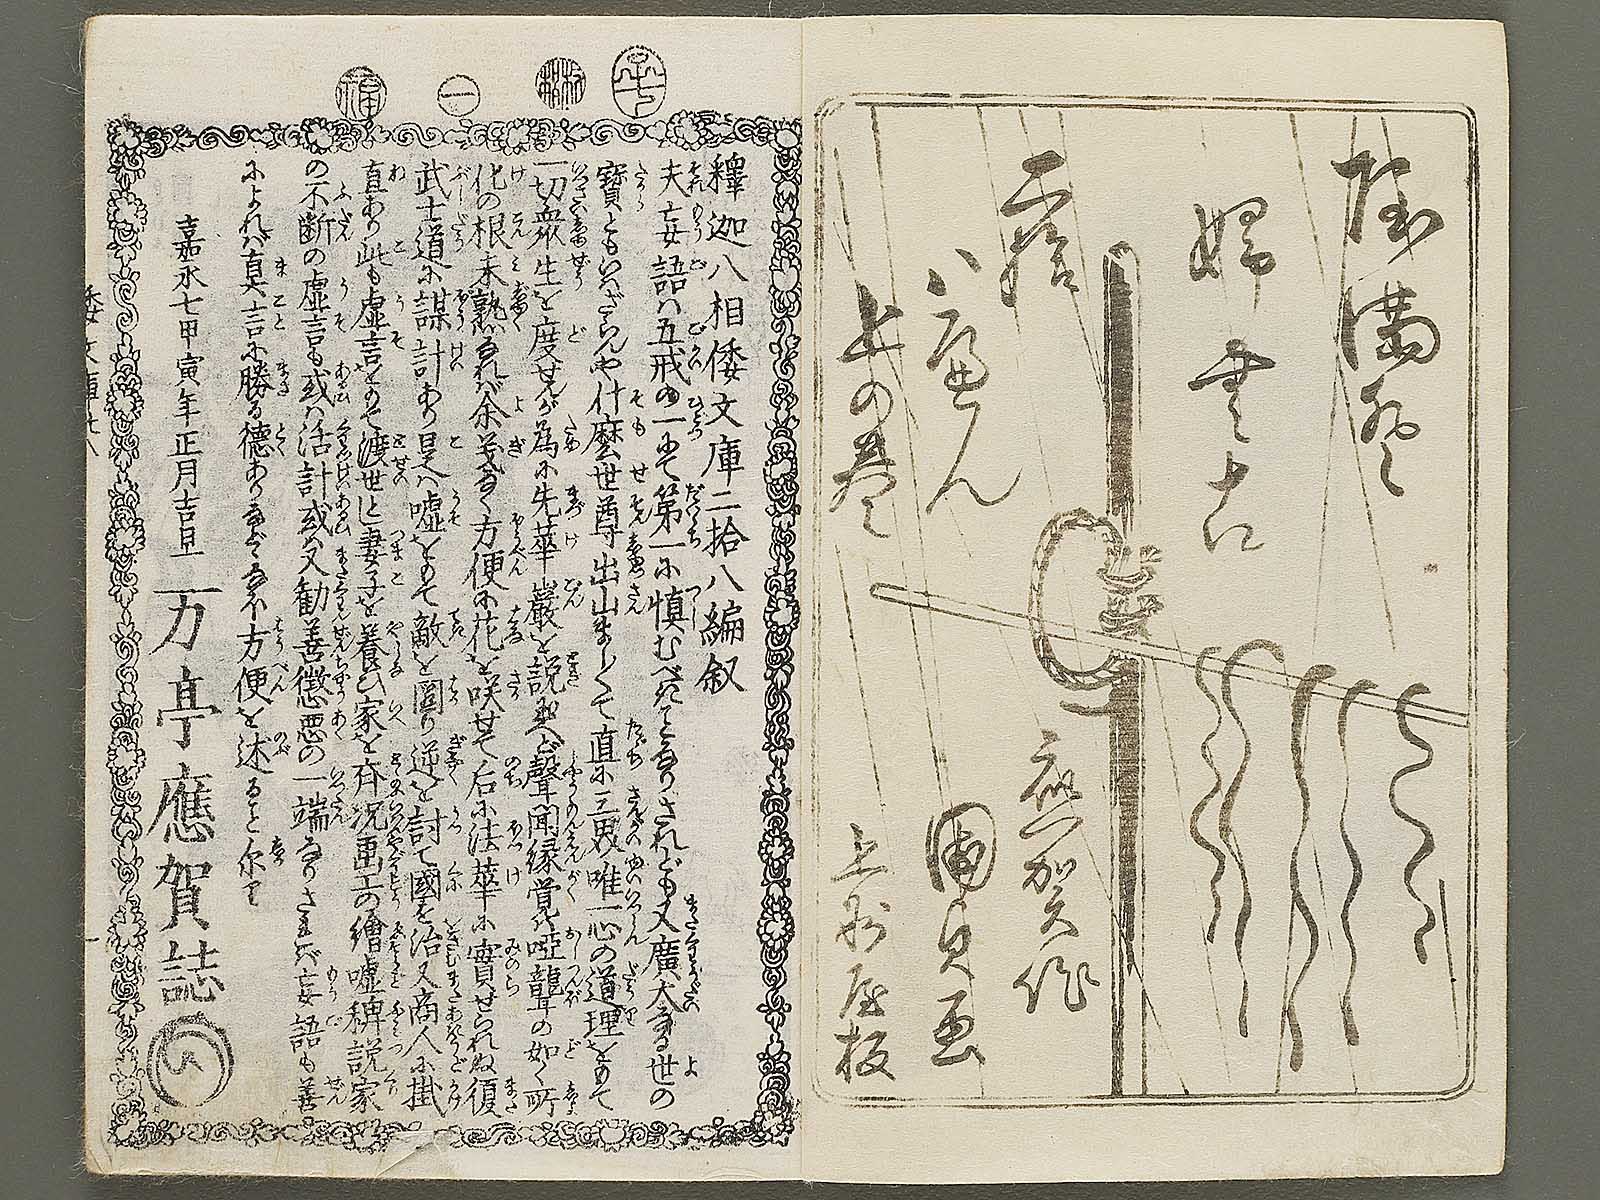 満登
婦
古
二拾
八へん
上の巻
應賀作
國貞画
上州屋板
一
福
釋迦八相倭文庫二拾八編叙
夫妄語ハ五戒の一にて第一に慎むべきことなりされども又廣大なる世の
寶ともいはざらんや什麽世尊出山ましまして直に三界唯一心の道理をもて
一切衆生を度せんが為に先華嚴を説玉へど聲聞縁覚ハ啞聾の如く所
化の根未熟なれバ余義なく方便に花を咲せて后に法華に實せられぬ復
武士道に謀計あり是ハ嘘をもて敵を圖り逆を討て國を治又商人に掛
直あり此も虚言をもて渡世し妻子を養ひ家を齊況画工の繪嘘稗説家
の不断の虚言も或ハ活計或ハ又勧善懲悪の一端なりさすれバ妄語も善
によれバ真言に勝る徳あり方便を述ること
嘉永七甲寅年正月吉旦 万亭應賀誌
倭文庫廿八 一